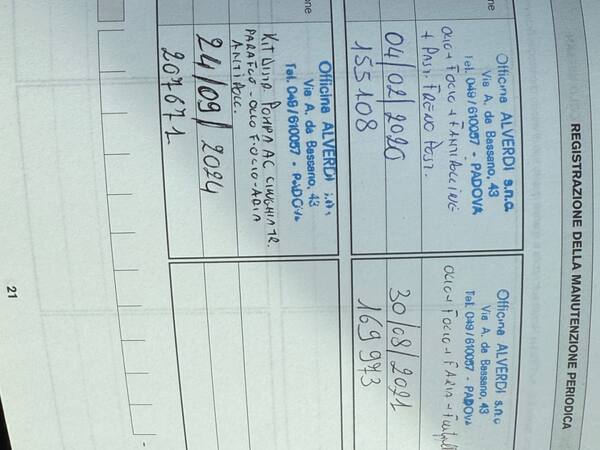 REGISTRAZIONE DELLA MANUTENZIONE PERIODICA
Officina ALVERDI s.n.c
Via A. da Bassano, 43
Tel. 049/610057 - PADOVA
OLIO + FOLIO + FANTIPOLLINE
+ PAST. FRENO POST.
04/02/2020
155108
Officina ALVERDI s.n.c
Via A. da Bassano, 43
Tel. 049/610057 - PADOVA
OLIO + FOLIO + FARIA +
30/08/2021
169 973
Officina ALVERDI
Via A. da Bassano, 43
Tel. 049/610057 - PADOVA
KIT DISTR. POMPA AC. CINGHIA TR.
PARAFLU - OLIO F.OLIO - ARIA
ANTIPOLL.
24/09/2024
207671
21